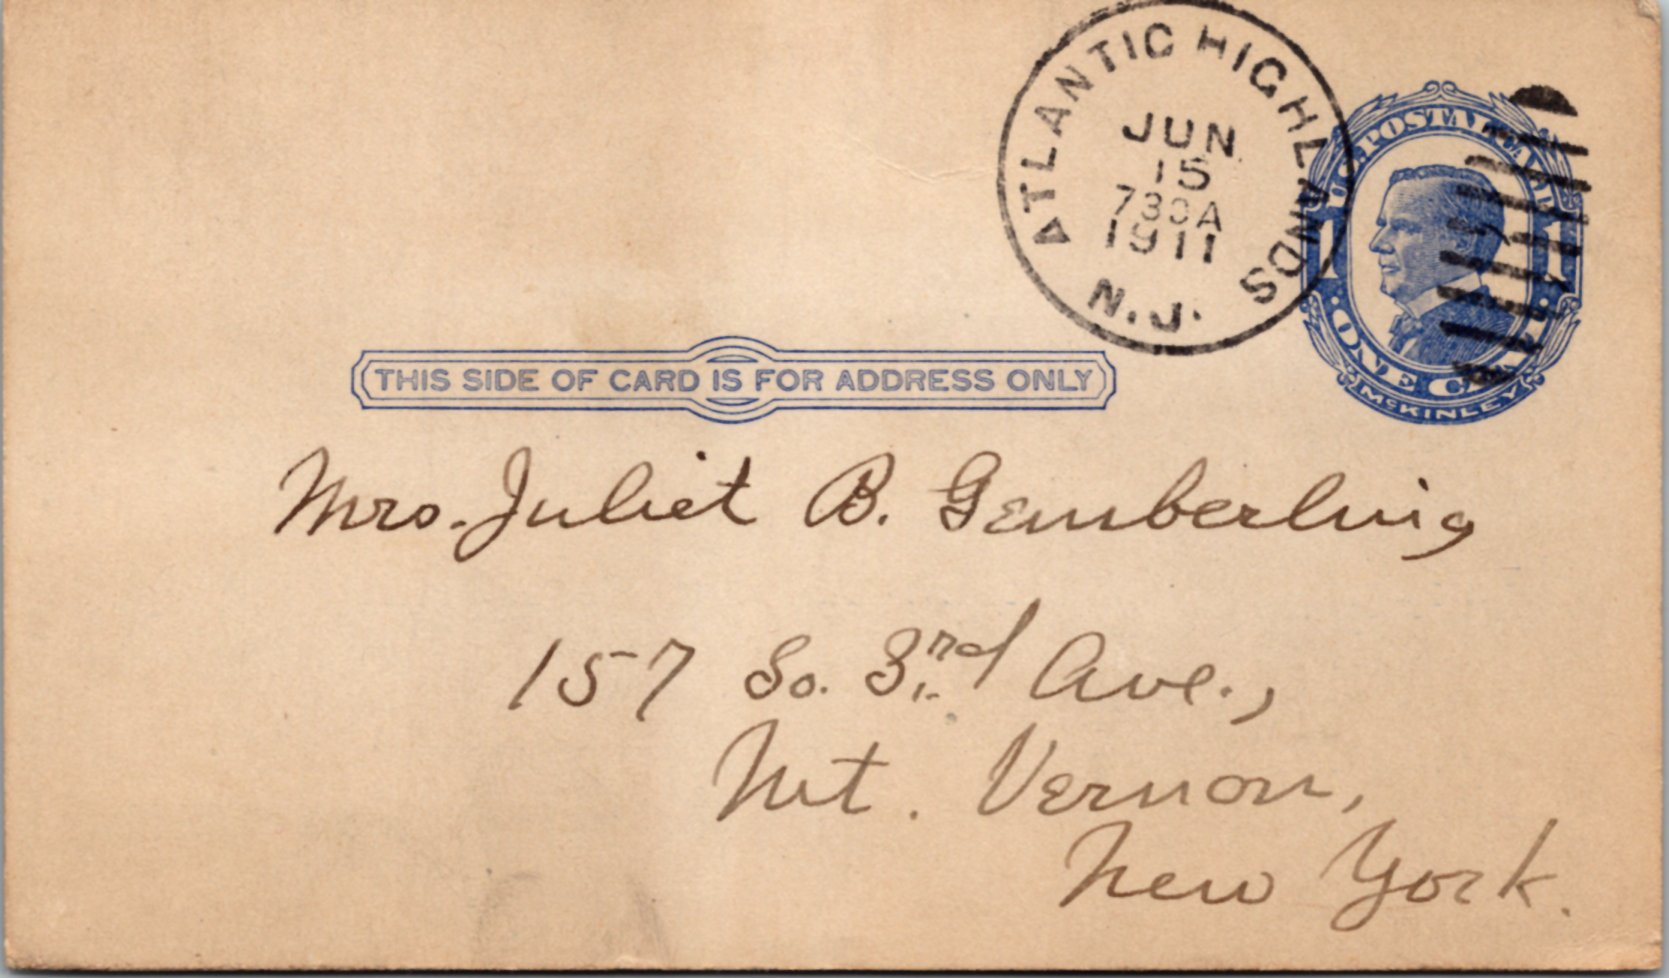 ATLANTIC HIGHLANDS
JUN
15
730A
1911
N.J.
U.S. POSTAL CARD
1 1
· ONE CENT ·
McKINLEY
THIS SIDE OF CARD IS FOR ADDRESS ONLY
Mrs. Juliet B. Gemberling
157 So. 3rd Ave.,
Mt. Vernon,
New York.